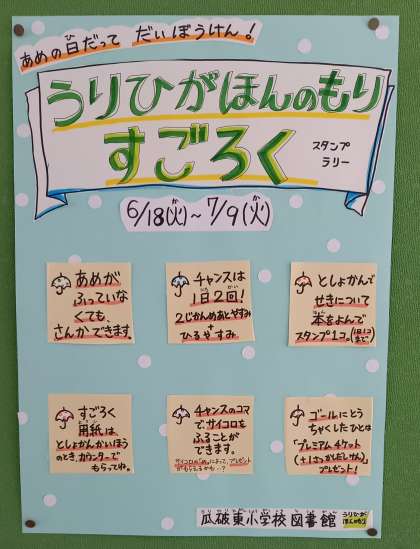 あめの日だって だいぼうけん!
うりひがほんのもり
すごろく
スタンプ
ラリー
6/18(火)~7/9(火)
あめが
ふっていな
くても、
さんかできます。
チャンスは
1日2回!
2じかんめあとやすみ
+
ひるやすみ
としょかんで
せきについて
本をよんで
スタンプ1コ。(1日1コまで)
すごろく
用紙は
としょかんかいほう
のとき、カウンターで
もらってね。
チャンスのコマ
で、サイコロを
ふることが
できます。
サイコロの「め」によって、プレゼント
がもらえるかも…?
ゴールにとう
ちゃくしたひとは
「プレミアムチケット
(+1さつかしだしけん)」
プレゼント!
瓜破東小学校図書館
うりひが
ほんのもり